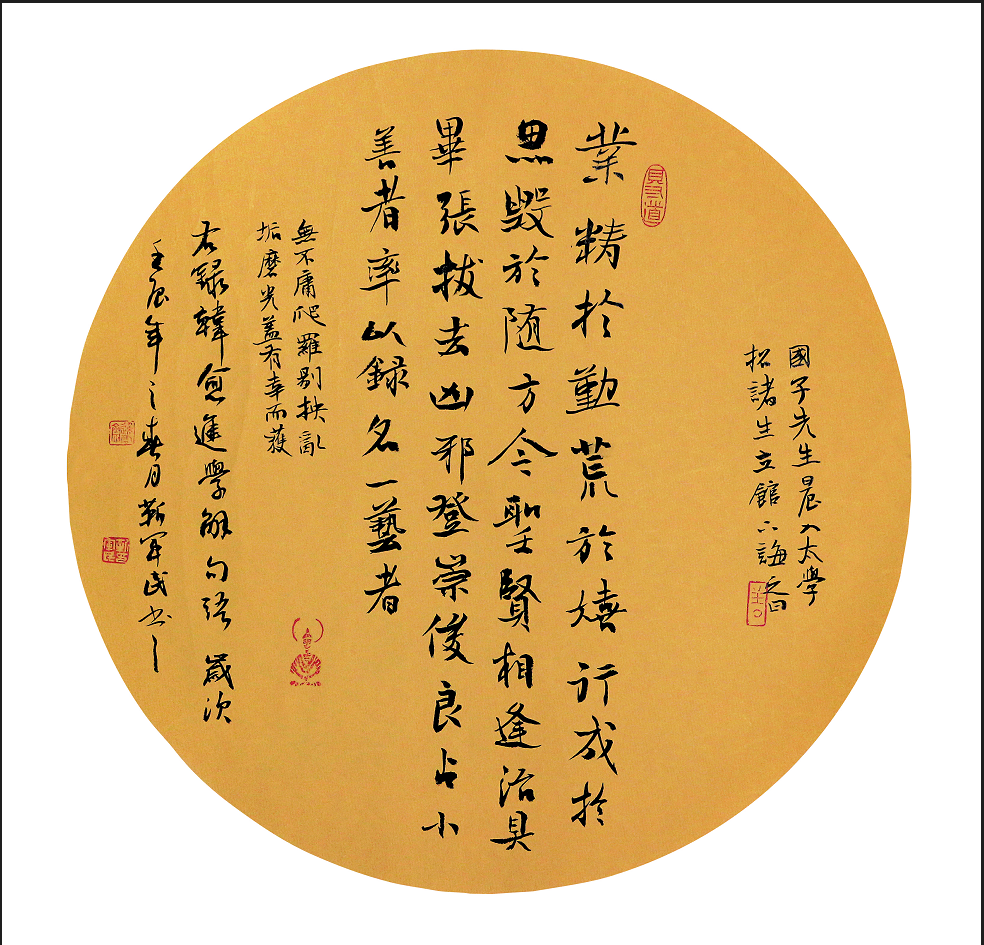 國子先生晨入太學
招諸生立館下誨之曰
業精於勤荒於嬉行成於
思毀於随方今聖賢相逢治具
畢張拔去凶邪登崇俊良占小
善者率以録名一藝者
無不庸爬羅剔抉刮
垢磨光蓋有幸而獲
右録韓愈進學解句語歲次
壬辰年之春月靳軍民书